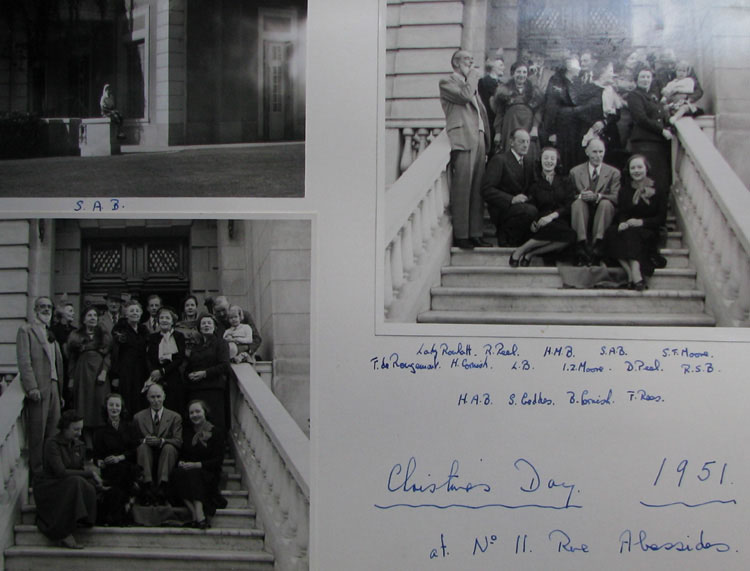 S. A. B.
Lady Rowlatt. R. Peel. H.M.B. S.A.B. S.F. Moore.
T. de Rougemont. H. Cornish. L.B. I.Z. Moore. D. Peel. R.S.B.
H.A.B. S. B. Cornish. F. Rees.
Christmas Day. 1951.
at. Nº 11. Rue Abessides.